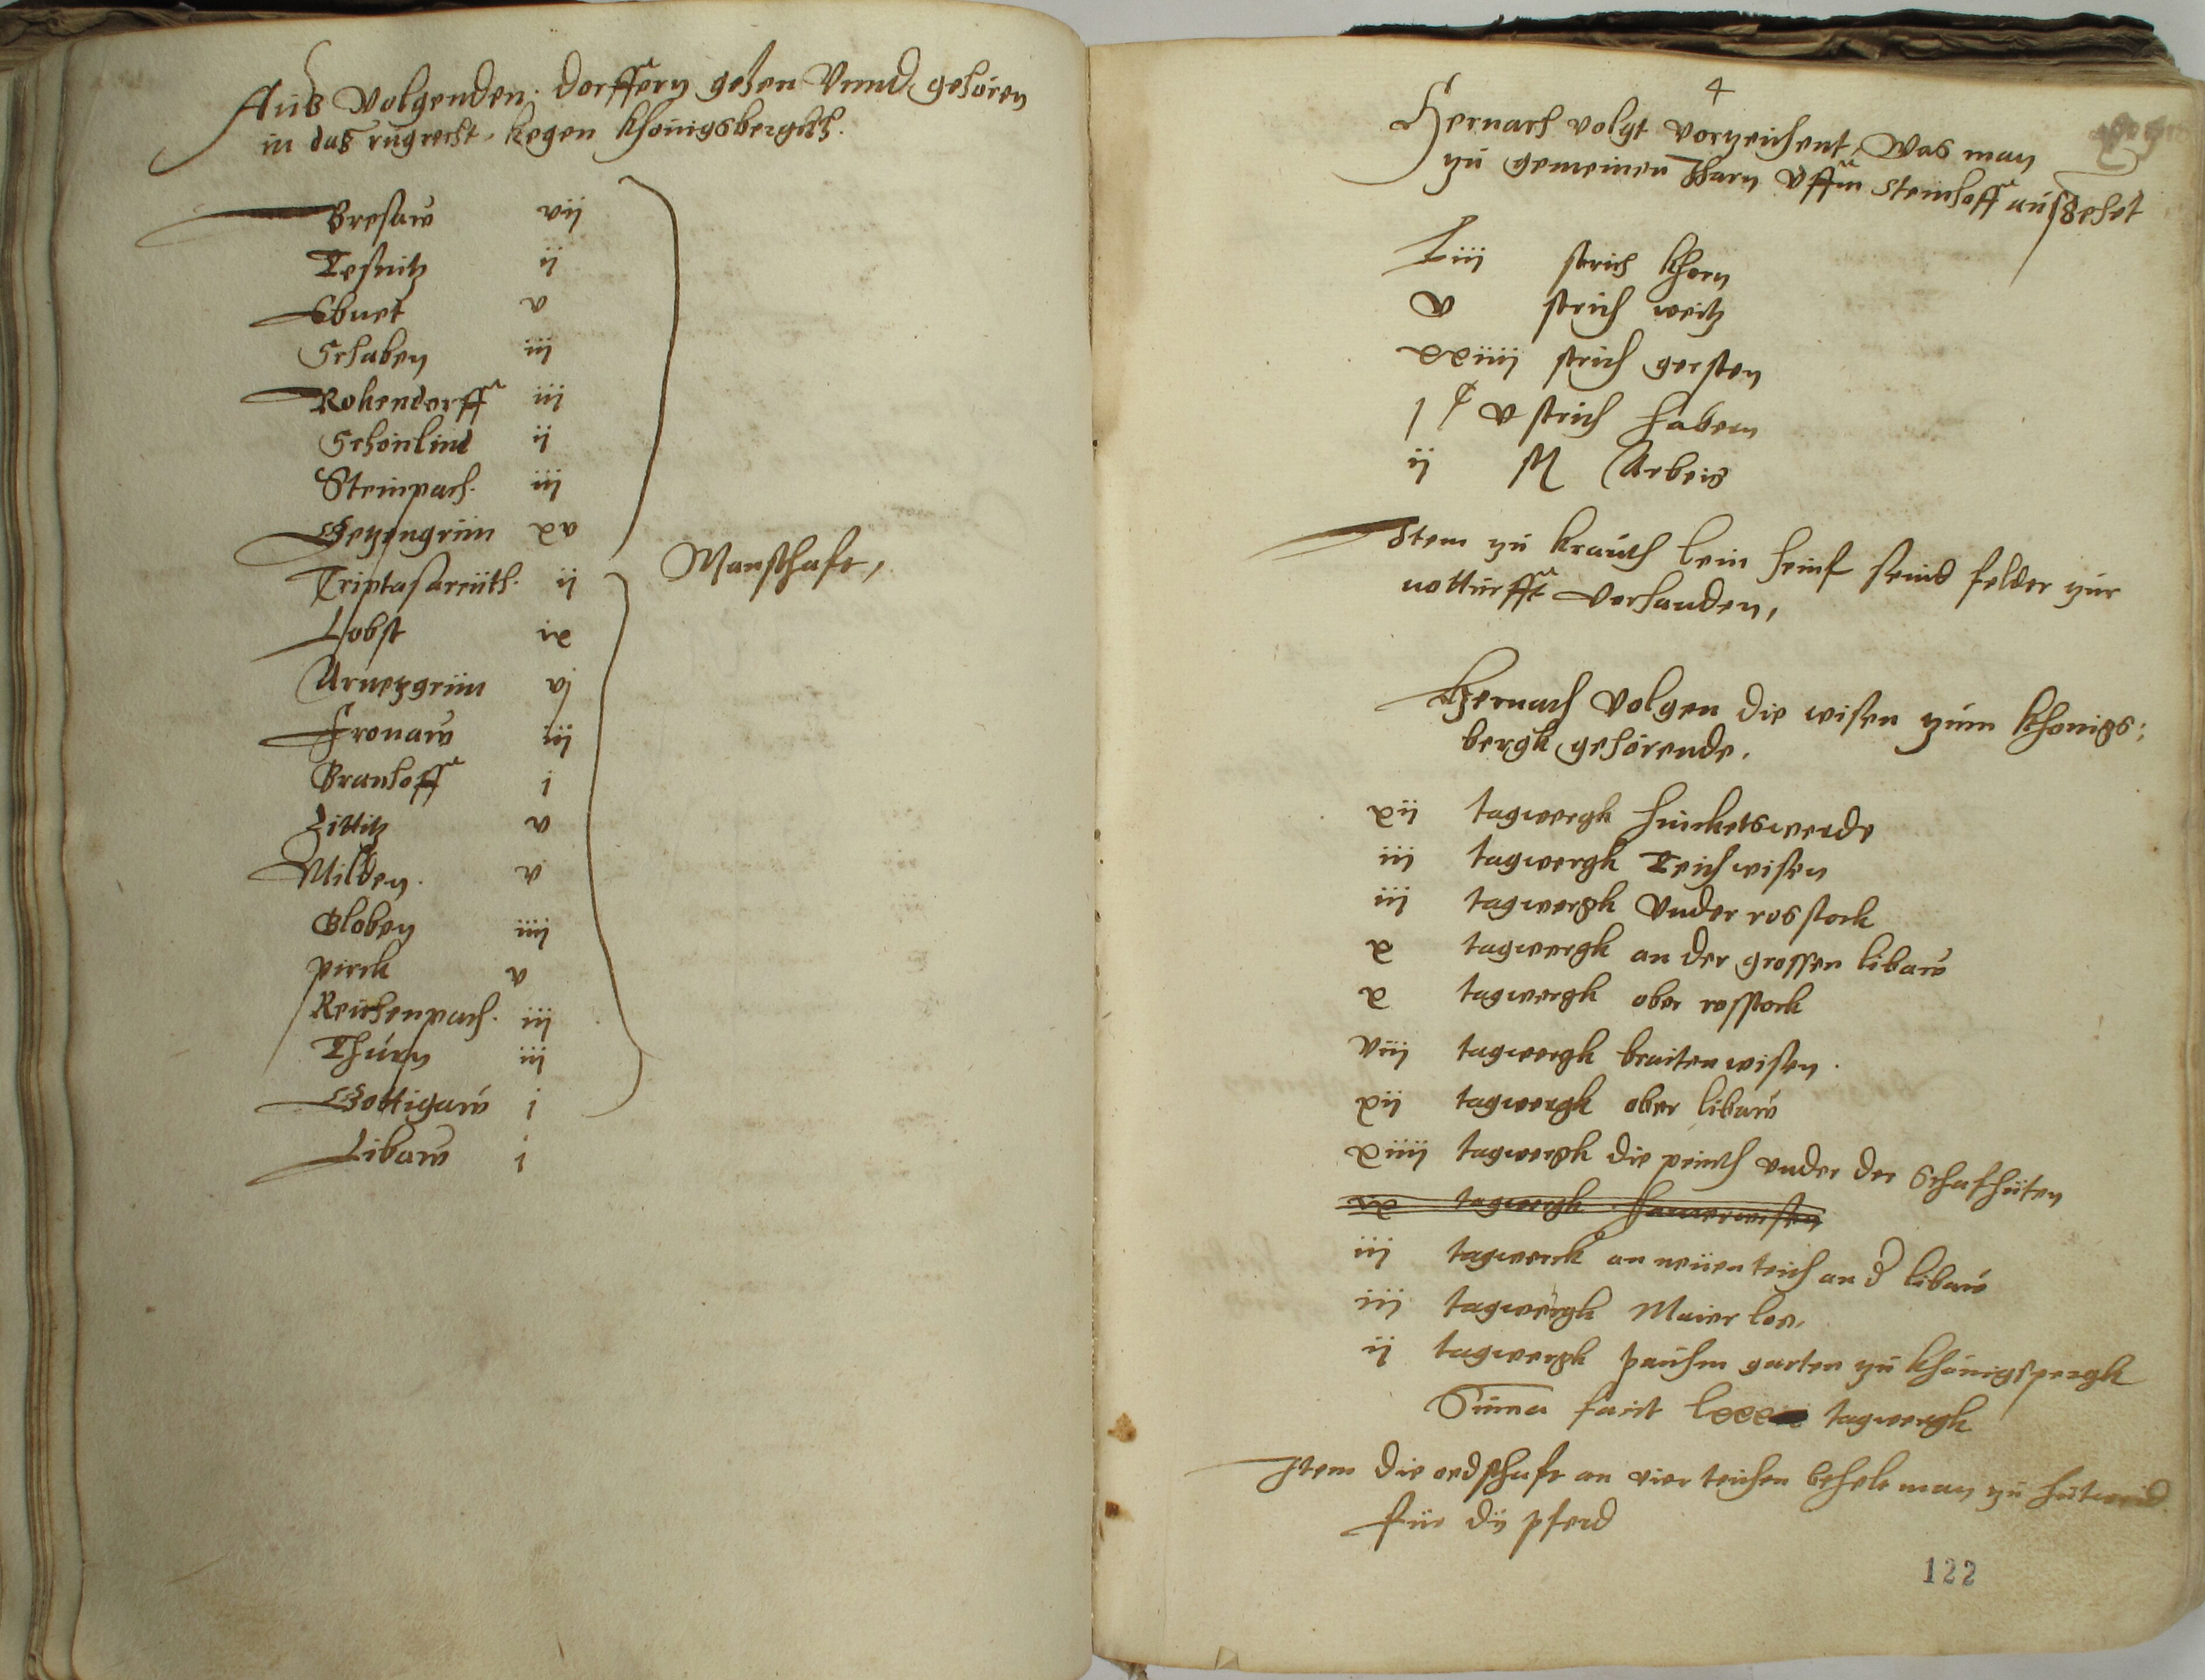 Aus Volgenden dorffern gehen Vnnd gehören
in das rugrecht kegen Khönigsbergkh.
Bresaw vij
Tesnitz ij
Ebnet v
Schaben iij
Rokendorff iij
Schönlind ij
Steinpach. iij
Geyengrün xv
Triptasareüth. ij
Lobst ix
Arnetzgrün vj
Fronaw iij
Branhoff j
Zittitz v
Milden. v
Globen iiij
pirck v
Reichenpach. iij
Thürn iij
Gottigaw j
Libaw j
Manschaft,
4
Hernach volgt vorzeichent, Was man
zu gemeinen Jharn Vffm Steinhoff aussehet
Liij strich khorn
v strich weitz
xxiiij strich gersten
j C v strich habern
ij St Arbeis
Item zu krauth lein heinf seind felder zur
notturfft vorhanden,
Hernach Volgen die wisen zum Khönigs:
bergk gehörende.
xij tagwergk
iij tagwergk Teichwisen
iij tagwergk Vnder rosstock
x tagwergk an der grossen libaw
x tagwergk ober rosstock
viij tagwergk braitenwisen.
xij tagwergk ober libaw
xiiij tagwergk die peinth vnder der Schafhüten
ix tagwergk
iij tagwerck an neüen teich an d libaw
iij tagwergk Maier loe,
ij tagwergk paühm garten zu khönigspergk
Suma facit lxxx tagwergk
Item die oedschaft an vier teichen behelt man zu hutweid
für dij pferd
122